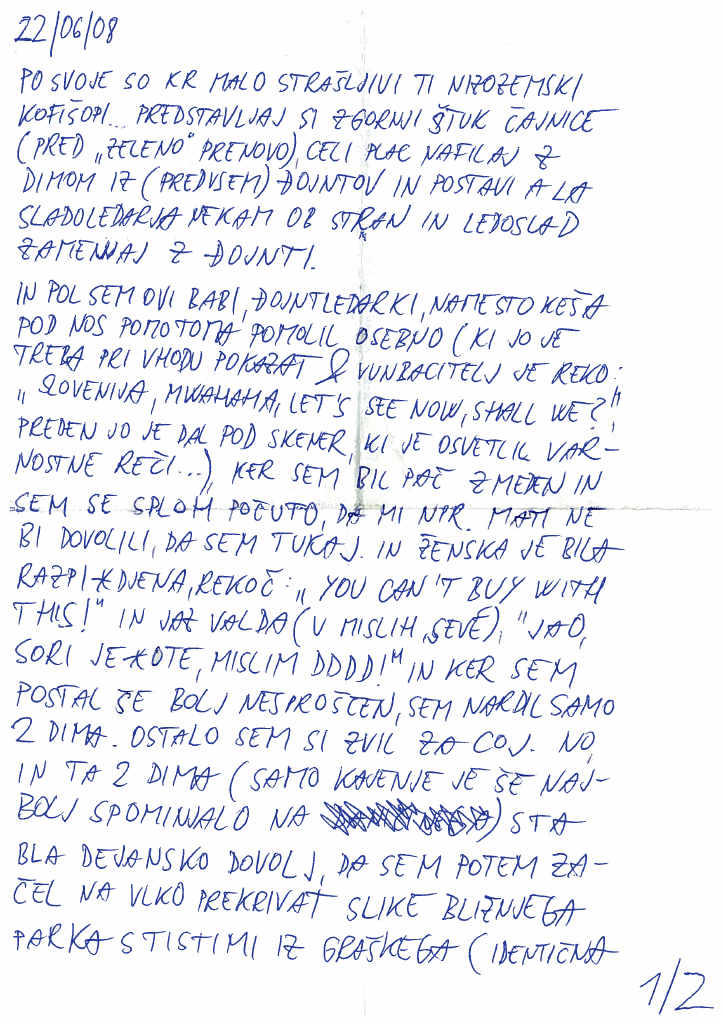 22/06/08
PO SVOJE SO KR MALO STRAŠLJIVI TI NIZOZEMSKI
KOFIŠOPI... PREDSTAVLJAJ SI ZGORNJI ŠTUK ČAJNICE
(PRED „ZELENO" PRENOVO), CELI PLAC NAFILAJ Z
DIMOM IZ (PREDVSEM) ĐOJNTOV IN POSTAVI A LA
SLADOLEDARJA NEKAM OB STRAN IN LEDOSLAD
ZAMENJAJ Z ĐOJNTI.
IN POL SEM OVI BABI, ĐOJNTLEDARKI, NAMESTO KEŠA
POD NOS POMOTOMA POMOLIL OSEBNO (KI JO JE
TREBA PRI VHODU POKAZAT & VUNBACITELJ JE REKO:
„SLOVENIJA, MWAHAHA, LET'S SEE NOW, SHALL WE?"
PREDEN JO JE DAL POD SKENER, KI JE OSVETLIL VAR-
NOSTNE REČI...), KER SEM BIL PAČ ZMEDEN IN
SEM SE SPLOH POČUTO, DA MI NPR. MAMI NE
BI DOVOLILI, DA SEM TUKAJ. IN ŽENSKA JE BILA
RAZPI*DJENA, REKOČ: „YOU CAN'T BUY WITH
THIS!" IN JAZ VALDA (V MISLIH, SEVÉ), "JAO,
SORI JE*OTE, MISLIM DDDD!" IN KER SEM
POSTAL ŠE BOLJ NESPROŠČEN, SEM NARDIL SAMO
2 DIMA. OSTALO SEM SI ZVIL ZA COJ. NO,
IN TA 2 DIMA (SAMO KAJENJE JE ŠE NAJ-
BOLJ SPOMINJALO NA ) STA
BLA DEJANSKO DOVOLJ, DA SEM POTEM ZA-
ČEL NA VLKO PREKRIVAT SLIKE BLIŽNJEGA
PARKA S TISTIMI IZ GRAŠKEGA (IDENTIČNA
1/2